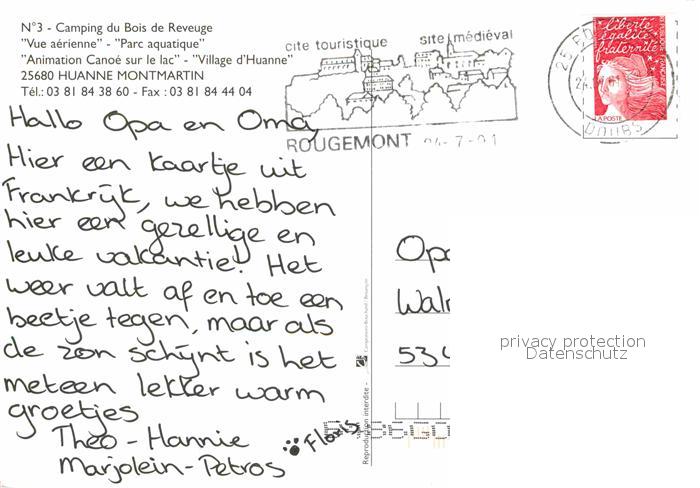 N°3 - Camping du Bois de Reveuge
"Vue aérienne" - "Parc aquatique"
"Animation Canoé sur le lac" - "Village d'Huanne"
25680 HUANNE MONTMARTIN
Tél.: 03 81 84 38 60 - Fax : 03 81 84 44 04
cite touristique site médiéval
ROUGEMONT 24-7-01
liberté
égalité
fraternité
REPUBLIQUE FRANÇAISE
LA POSTE
DOUBS
Hallo Opa en Oma,
Hier een kaartje uit
Frankrijk, we hebben
hier een gezellige en
leuke vakantie! Het
weer valt af en toe een
beetje tegen, maar als
de zon schijnt is het
meteen lekker warm
groetjes
Theo - Hannie
Marjolein - Petros
Floris
Reproduction interdite -
Opa
534
privacy protection
Datenschutz